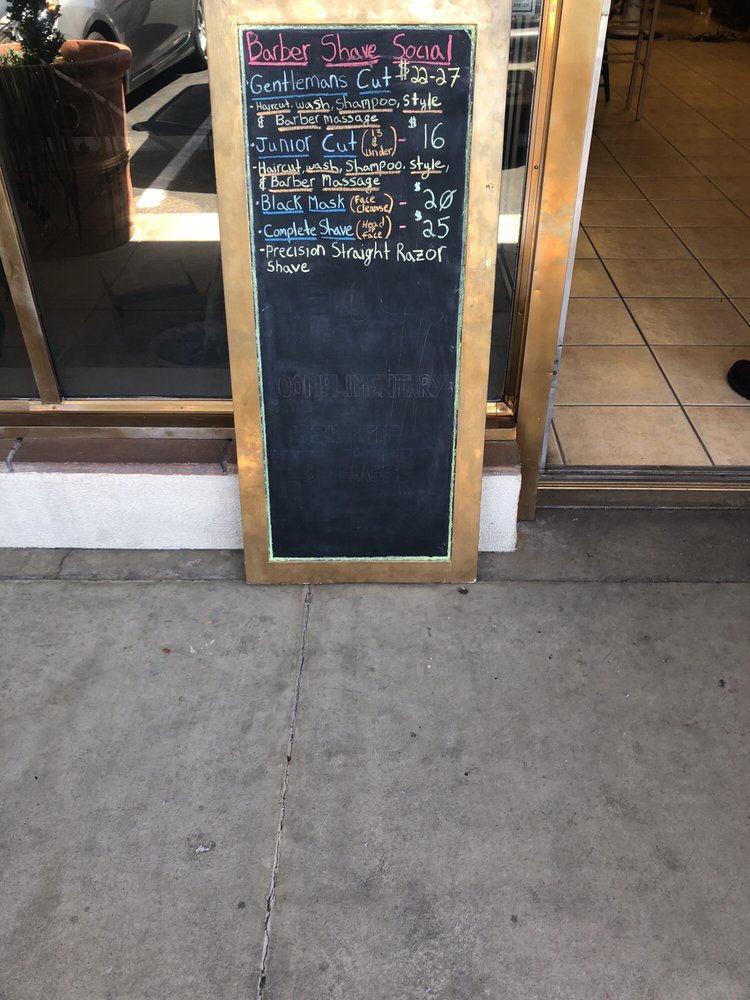 Barber Shave Social
·Gentlemans Cut $22-27
-Haircut, wash, Shampoo, style
& Barber massage
·Junior Cut (13 & under) - $16
-Haircut, wash, Shampoo, style,
& Barber Massage
·Black Mask (Face Cleanse) - $20
·Complete Shave (Head Face) - $25
-Precision Straight Razor
Shave
COMPLIMENTARY